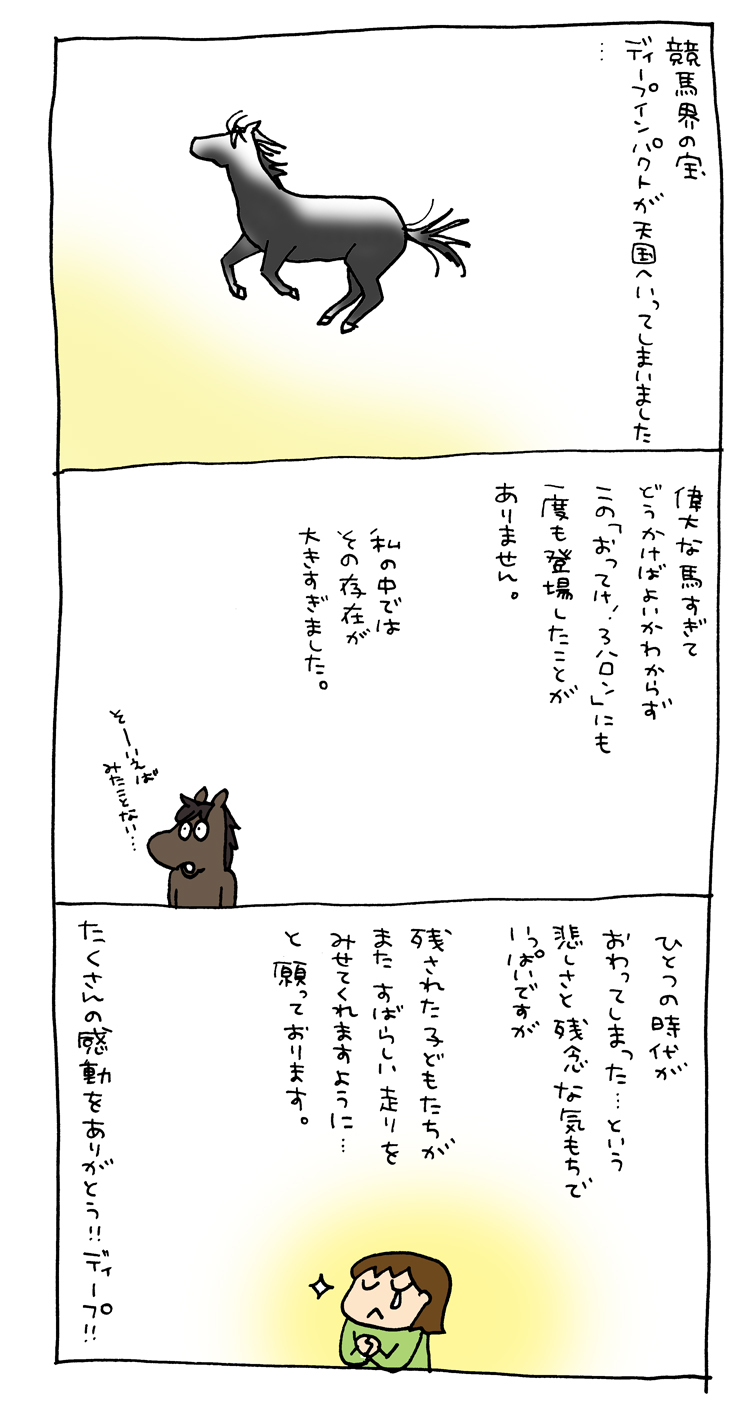 競馬界の宝、
ディープインパクトが天国へいってしまいました
…
偉大な馬すぎて
どうかけばよいかわからず
この「おってけ！3ハロン」にも
一度も登場したことが
ありません。
私の中では
その存在が
大きすぎました。
そーいえば
みたことない…
ひとつの時代が
おわってしまった…という
悲しさと残念な気もちで
いっぱいですが
残された子どもたちが
またすばらしい走りを
みせてくれますように…
と願っております。
たくさんの感動をありがとう!!ディープ!!